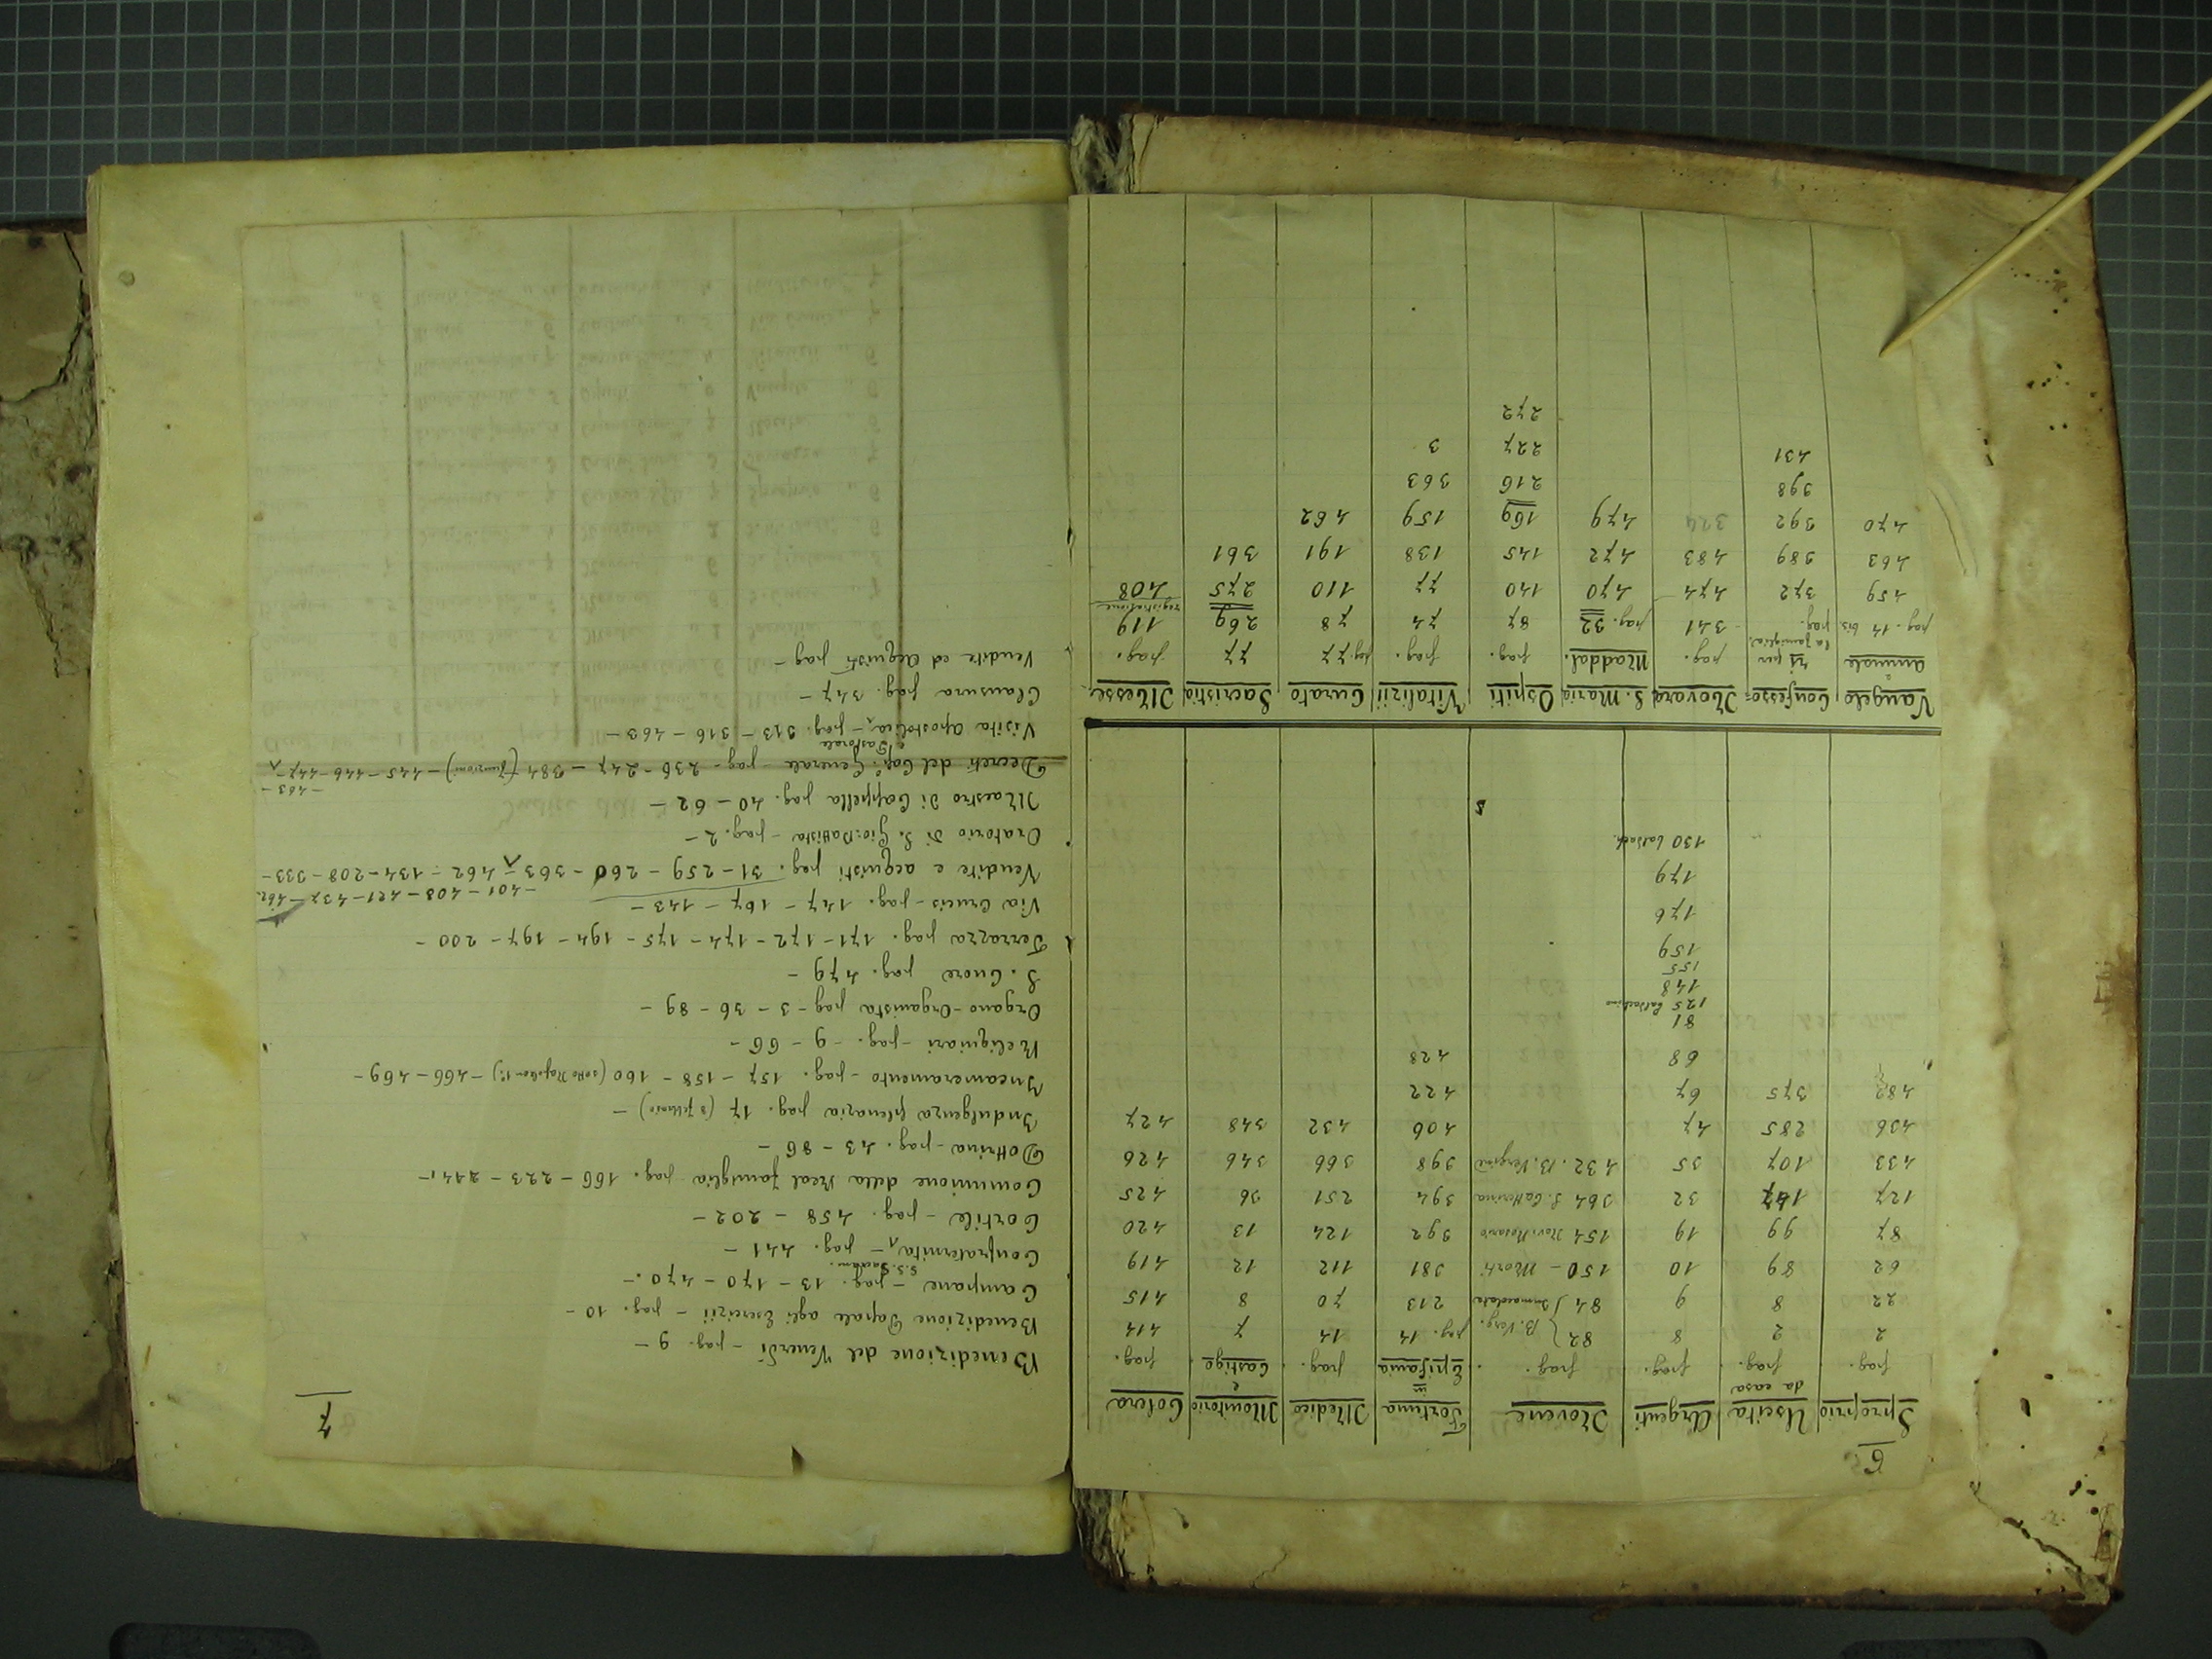 6
Sproprio Uscita Argenti Novene Fortuna Medico Monitorio Colera
da casa in e
pag. pag. pag. pag. Epifania pag. Castigo pag.
2 2 8 82 } B. Verg. pag. 14 14 7 414
22 8 9 84 ) Immacolata 213 70 8 415
62 89 10 150 - Morti 381 112 12 419
87 99 19 154 Nov. Rosario 392 124 13 420
127 147 32 364 S. Catterina 394 251 36 425
433 107 35 432. B. Vergine 398 366 346 426
436 285 47 406 432 348 427
482 375 67 422
68 428
81
125 baldacchino
148
155
159
176
179
130 baldach.
Vangelo Confesso= Novara S. Maria Ospiti Vitalizii Curato Sacristia Messe
annuale ri per pag. Maddal. pag. pag. pag. 77 77 pag.
la famiglia
pag. 14 bis. pag. 341 pag. 32 87 74 78 269 119
registrazione
459 372 474 470 140 77 110 275 408
463 389 483 472 145 138 191 361
470 392 324 479 169 159 462
398 216 363
431 227 3
272
7
Benedizione del Venerdì - pag. 9 -
Benedizione Papale agli Esercizii - pag. 10 -
Campane - pag. 13 - 170 - 470. -
S.S. Sacram.
Confraternita - pag. 441 -
Cortile - pag. 458 - 202 -
Comunione della Real famiglia pag. 166 - 223 - 244 -
Dottrina - pag. 43 - 86 -
Indulgenza plenaria pag. 17 (8 febbraio) -
Incameramento - pag. 157 - 158 - 160 (sotto Napoleon 1º) - 466 - 469 -
Reliquiari - pag. - 9 - 66 -
Organo - Organista pag - 3 - 36 - 89 -
S. Cuore pag. 479 -
Terrazza pag. 171 - 172 - 174 - 175 - 194 - 197 - 200 -
Via Crucis - pag. 147 - 167 - 143 -
- 401 - 408 - 421 - 437 - 462
Vendite e acquisti pag. 31 - 259 - 260 - 363 - 462 - 134 - 208 - 333 -
Oratorio di S. Gio: Battista - pag. 2 -
Maestro di Cappella pag. 40 - 62 -
- 463 -
Decreti del Cap. Generale - pag. 236 - 247 - 384 (funzioni) - 445 - 446 - 447 -
e Pastorale
Visita apostolica - pag. 313 - 316 - 463 -
Clausura pag. 347 -
Vendite ed acquisti pag -